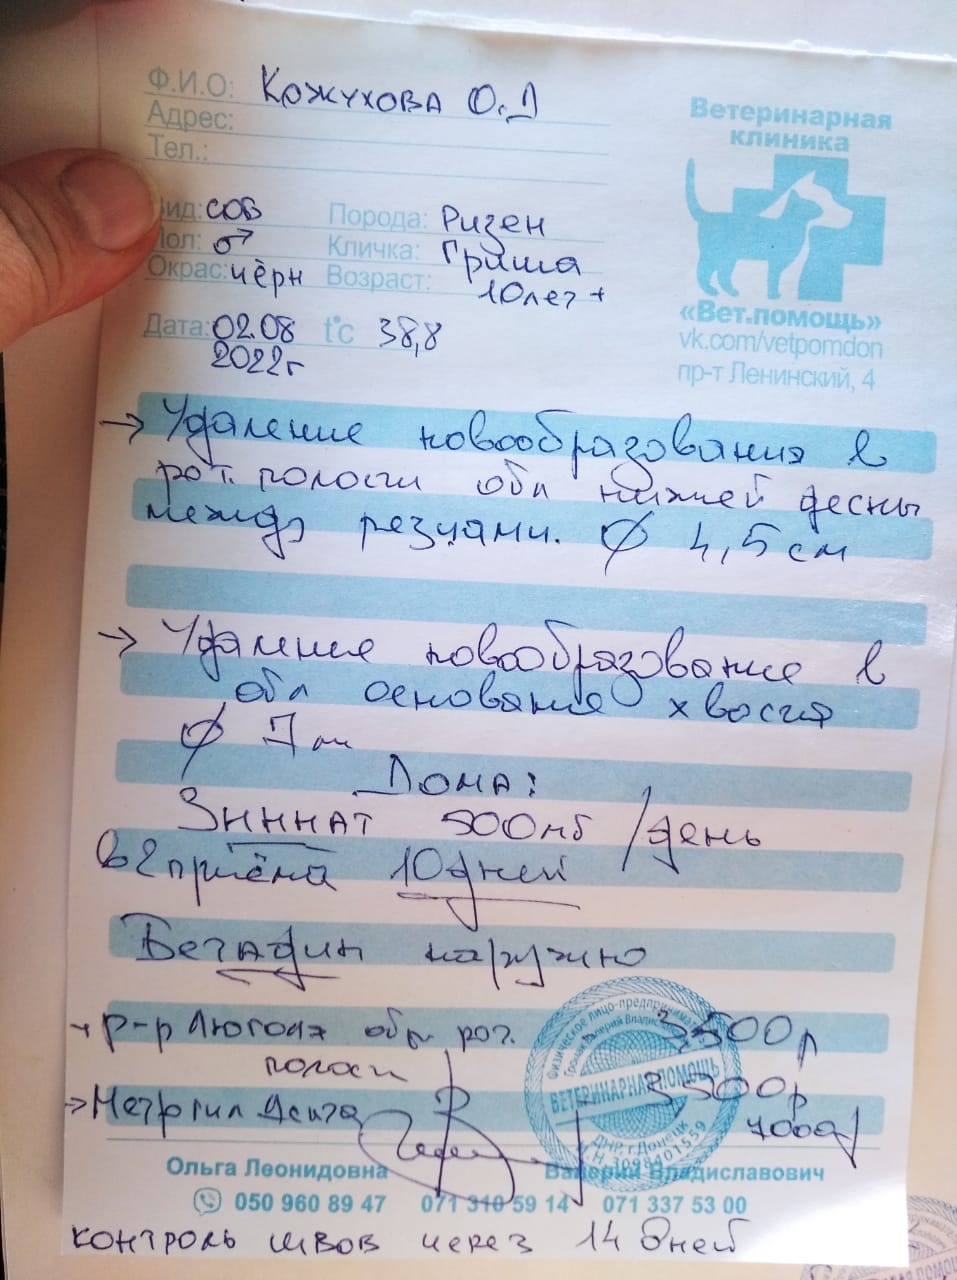 Ф.И.О: Кожухова О.Д
Адрес:
Тел.:
Ветеринарная
клиника
Вид: соб Порода: Ризен
Пол: ♂ Кличка: Гриша
Окрас: чёрн Возраст: 10лет +
Дата: 02.08 t°c 38,8
2022г
«Вет.помощь»
vk.com/vetpomdon
пр-т Ленинский, 4
→ Удаление новообразования в
рот. полости обл нижней десны
между резцами. ∅ 4,5 см
→ Удаление новообразование в
обл основание хвоста
∅ 7 см
Дома:
Зиннат 500мг /день
в 2 приёма 10дней
Бетадин наружно
→ р-р Люголя обр. рот. 3500р
полости
→ Метрогил Дента 3500р
7000р
ВЕТЕРИНАРНАЯ ПОМОЩЬ
Физическое лицо-предприниматель
Валерий Владиславович
ДНР, г.Донецк
Ольга Леонидовна Валерий Владиславович
050 960 89 47 071 310 59 14 071 337 53 00
контроль швов через 14 дней